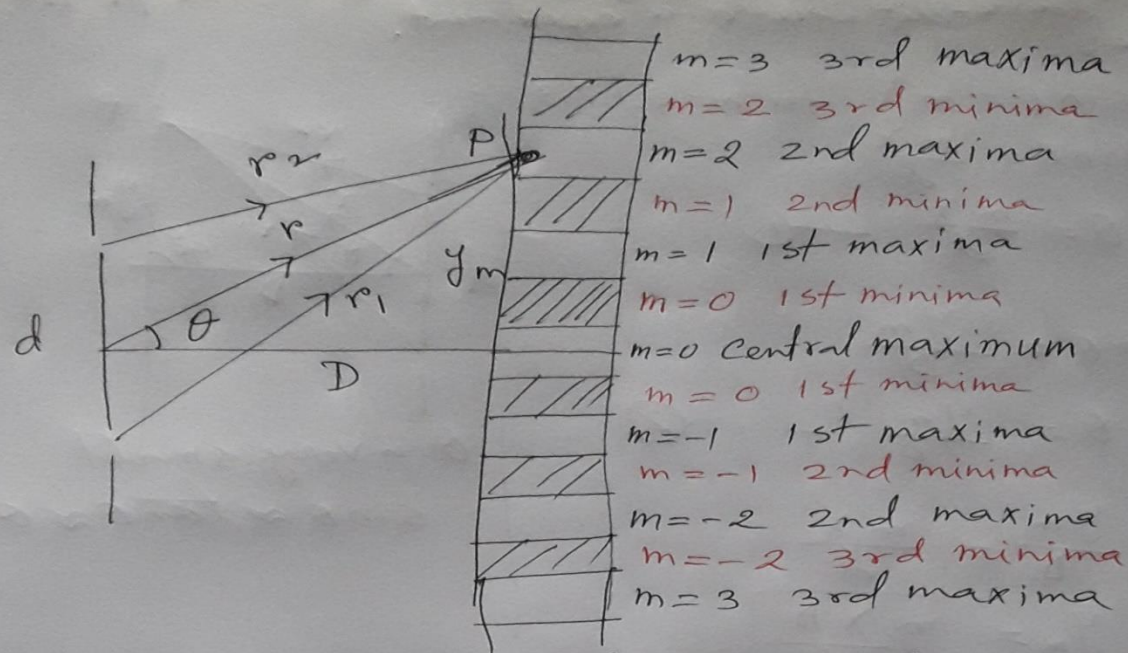 m=3 3rd maxima
m=2 3rd minima
P
m=2 2nd maxima
r2
m=1 2nd minima
r
m=1 1st maxima
ym
m=0 1st minima
r1
d
θ
m=0 Central maximum
D
m=0 1st minima
m=-1 1st maxima
m=-1 2nd minima
m=-2 2nd maxima
m=-2 3rd minima
m=3 3rd maxima